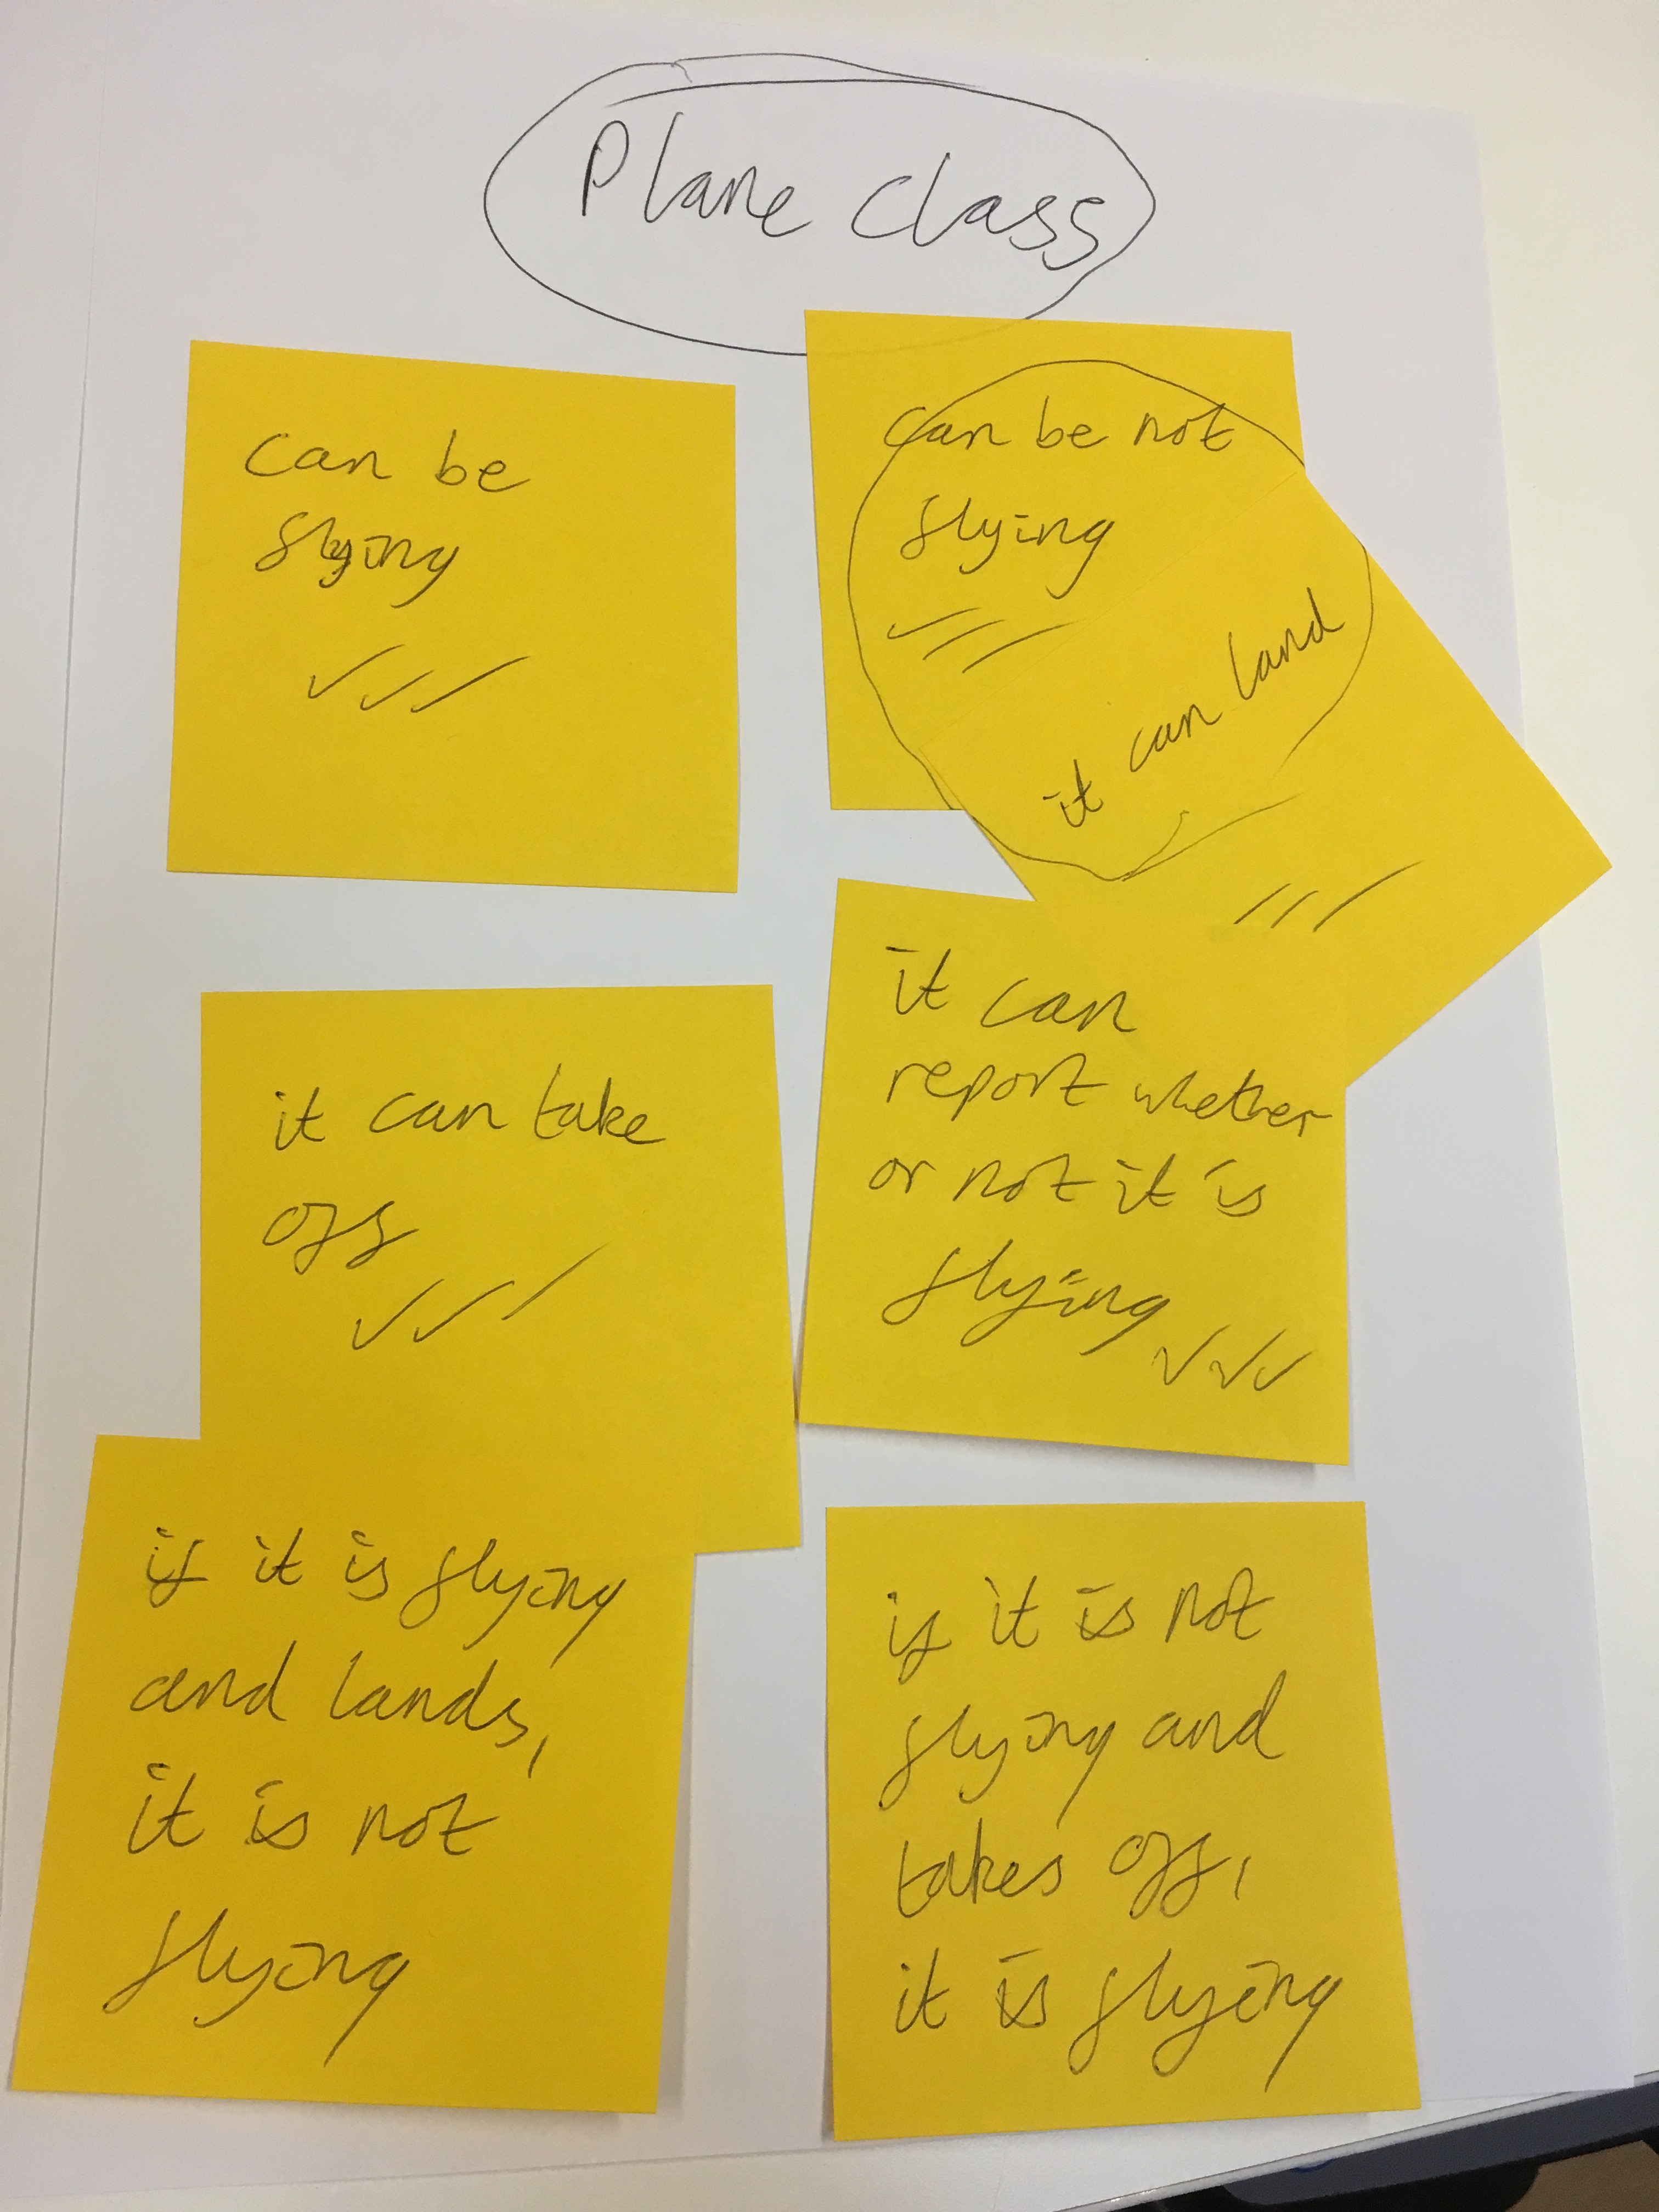 Plane class
can be
flying
can be not
flying
it can land
it can take
off
it can
report whether
or not it is
flying
if it is flying
and lands,
it is not
flying
if it is not
flying and
takes off,
it is flying